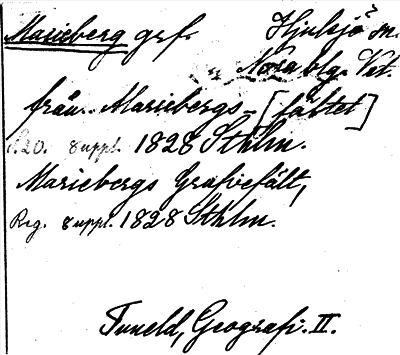 Marieberg grf. Hjulsjö sn.
Nora blg. Vst.
från Mariebergs-[fältet]
s.20. suppl. 1828 Sthlm.
Mariebergs Grufvefält,
Reg. suppl. 1828 Sthlm.
Tuneld, Geografi. II.